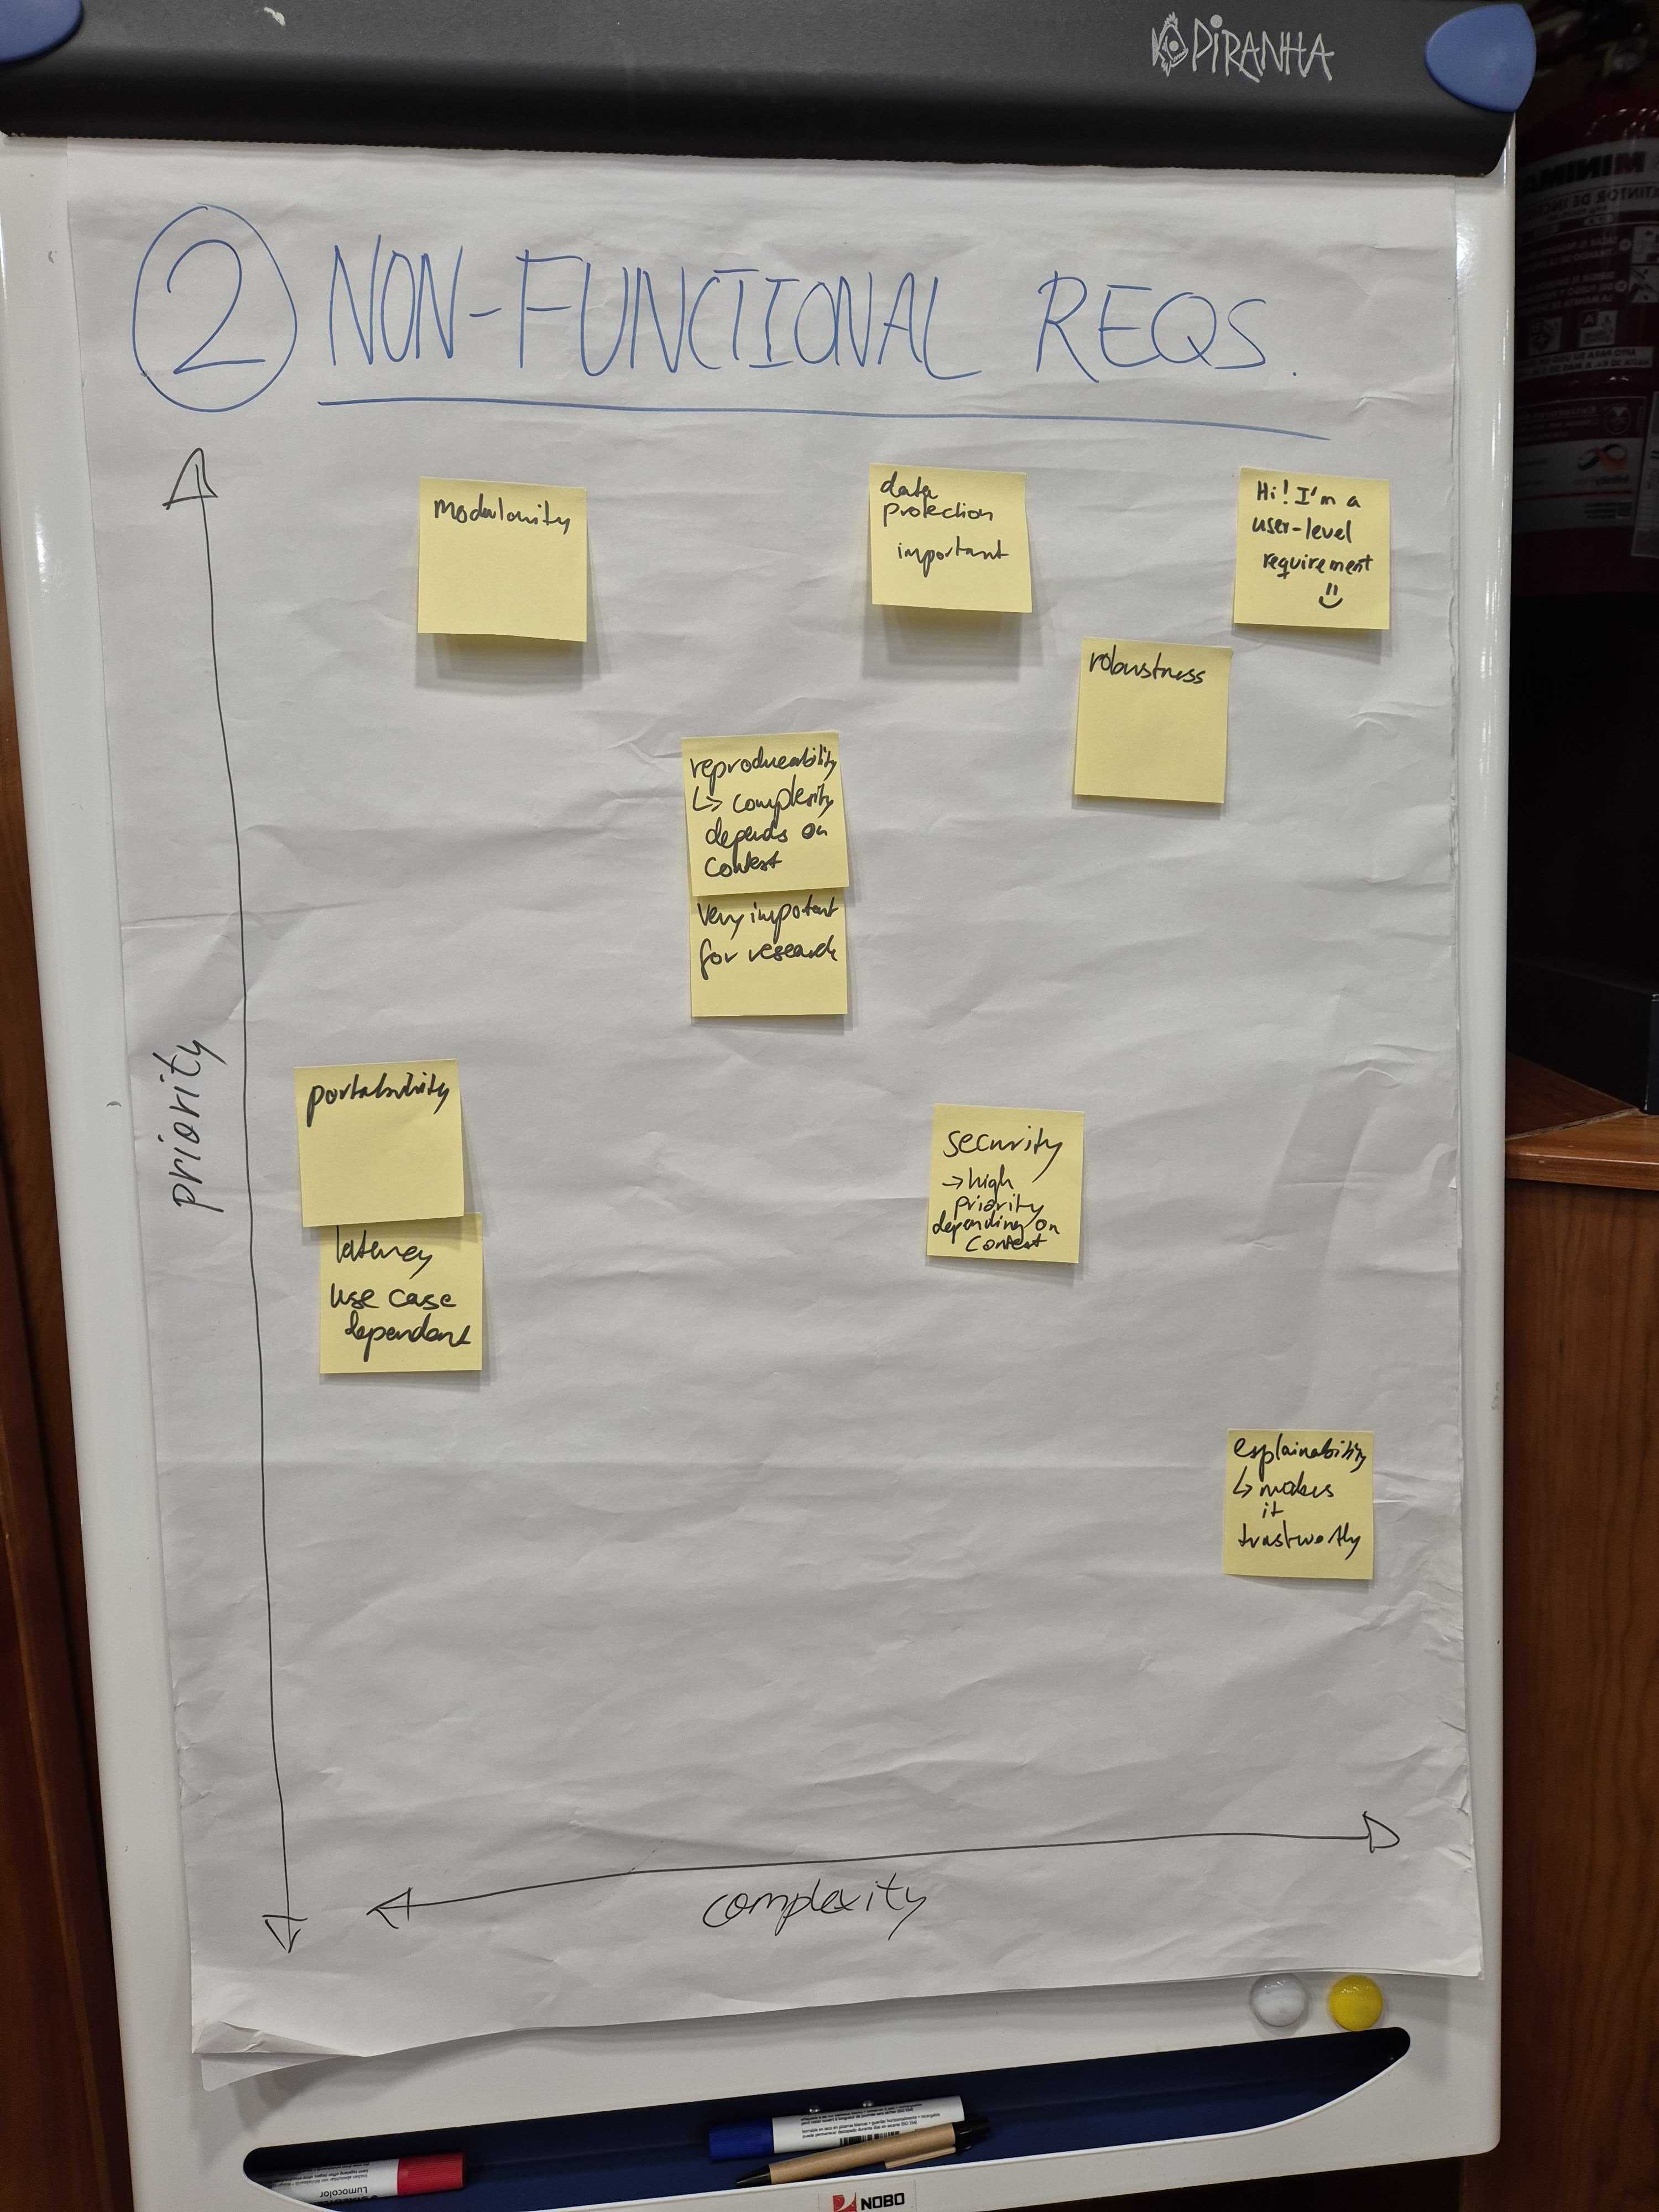 PIRANHA
2 NON-FUNCTIONAL REQS.
modularity
data
protection
important
Hi! I'm a
user-level
requirement
robustness
reproduceability
↳ complexity
depends on
context
very important
for research
priority
portability
latency
use case
dependent
security
→ high
priority
depending on
context
explainability
↳ makes
it
trustworthy
complexity
Lumocolor
NOBO